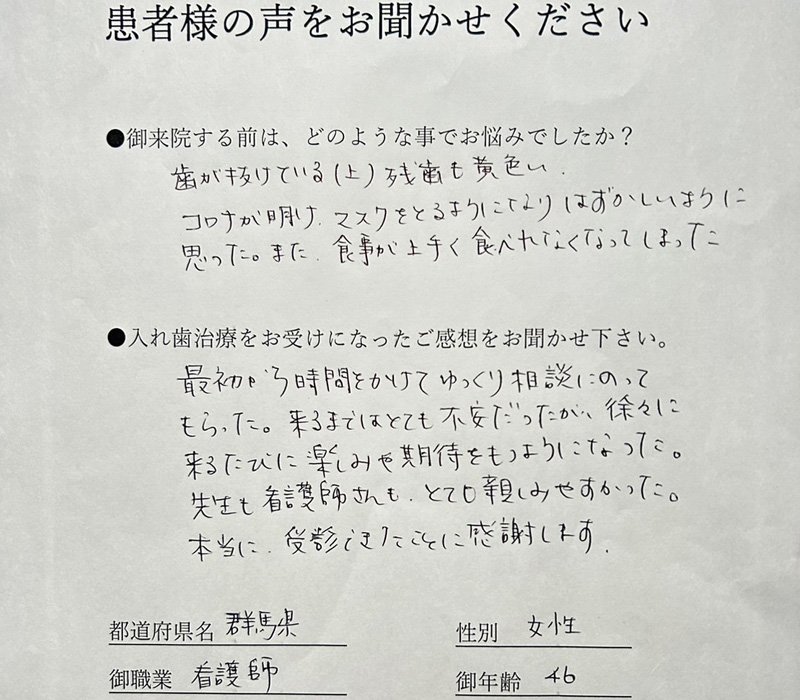 患者様の声をお聞かせください
●御来院する前は、どのような事でお悩みでしたか？
歯が抜けている(上)残歯も黄色い.
コロナが明け、マスクをとるようになりはずかしいように
思った。また、食事が上手く食べれなくなってしまった
●入れ歯治療をお受けになったご感想をお聞かせ下さい。
最初から時間をかけてゆっくり相談にのって
もらった。来るまではとても不安だったが、徐々に
来るたびに楽しみや期待をもつようになった。
先生も看護師さんも、とても親しみやすかった。
本当に、受診できたことに感謝します.
都道府県名 群馬県 性別 女性
御職業 看護師 御年齢 46